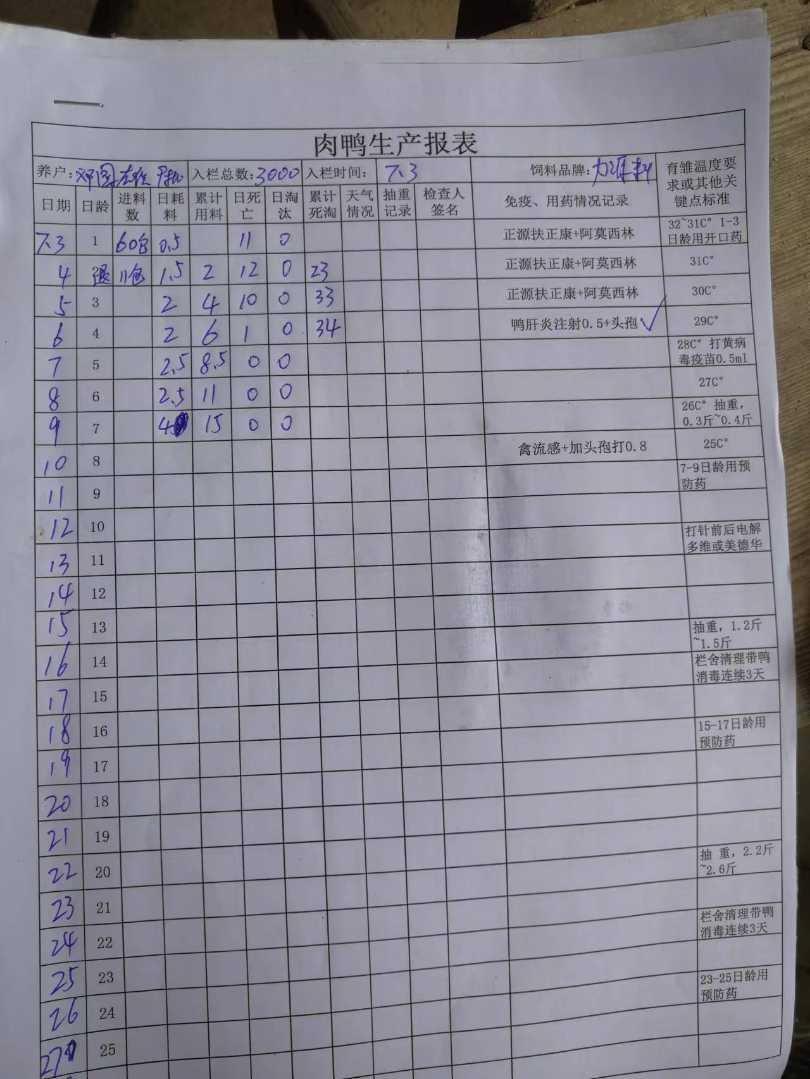 肉鸭生产报表
养户: 入栏总数:3000 入栏时间: 7.3 饲料品牌: 育雏温度要求或其他关键点标准
日期 日龄 进料数 日耗料 累计用料 日死亡 日淘汰 累计死淘 天气情况 抽重记录 检查人签名 免疫、用药情况记录
7.3 1 60包 0.5 11 0 正源扶正康+阿莫西林 32~31C° 1-3日龄用开口药
4 退11包 1.5 2 12 0 23 正源扶正康+阿莫西林 31C°
5 3 2 4 10 0 33 正源扶正康+阿莫西林 30C°
6 4 2 6 1 0 34 鸭肝炎注射0.5+头孢 29C°
7 5 2.5 8.5 0 0 28C° 打黄病毒疫苗0.5ml
8 6 2.5 11 0 0 27C°
9 7 4 15 0 0 26C° 抽重,0.3斤~0.4斤
10 8 禽流感+加头孢打0.8 25C°
11 9 7-9日龄用预防药
12 10 打针前后电解多维或美德华
13 11
14 12
15 13 抽重,1.2斤~1.5斤
16 14 栏舍清理带鸭消毒连续3天
17 15
18 16 15-17日龄用预防药
19 17
20 18
21 19
22 20 抽 重,2.2斤~2.6斤
23 21
24 22 栏舍清理带鸭消毒连续3天
25 23 23-25日龄用预防药
26 24
27 25